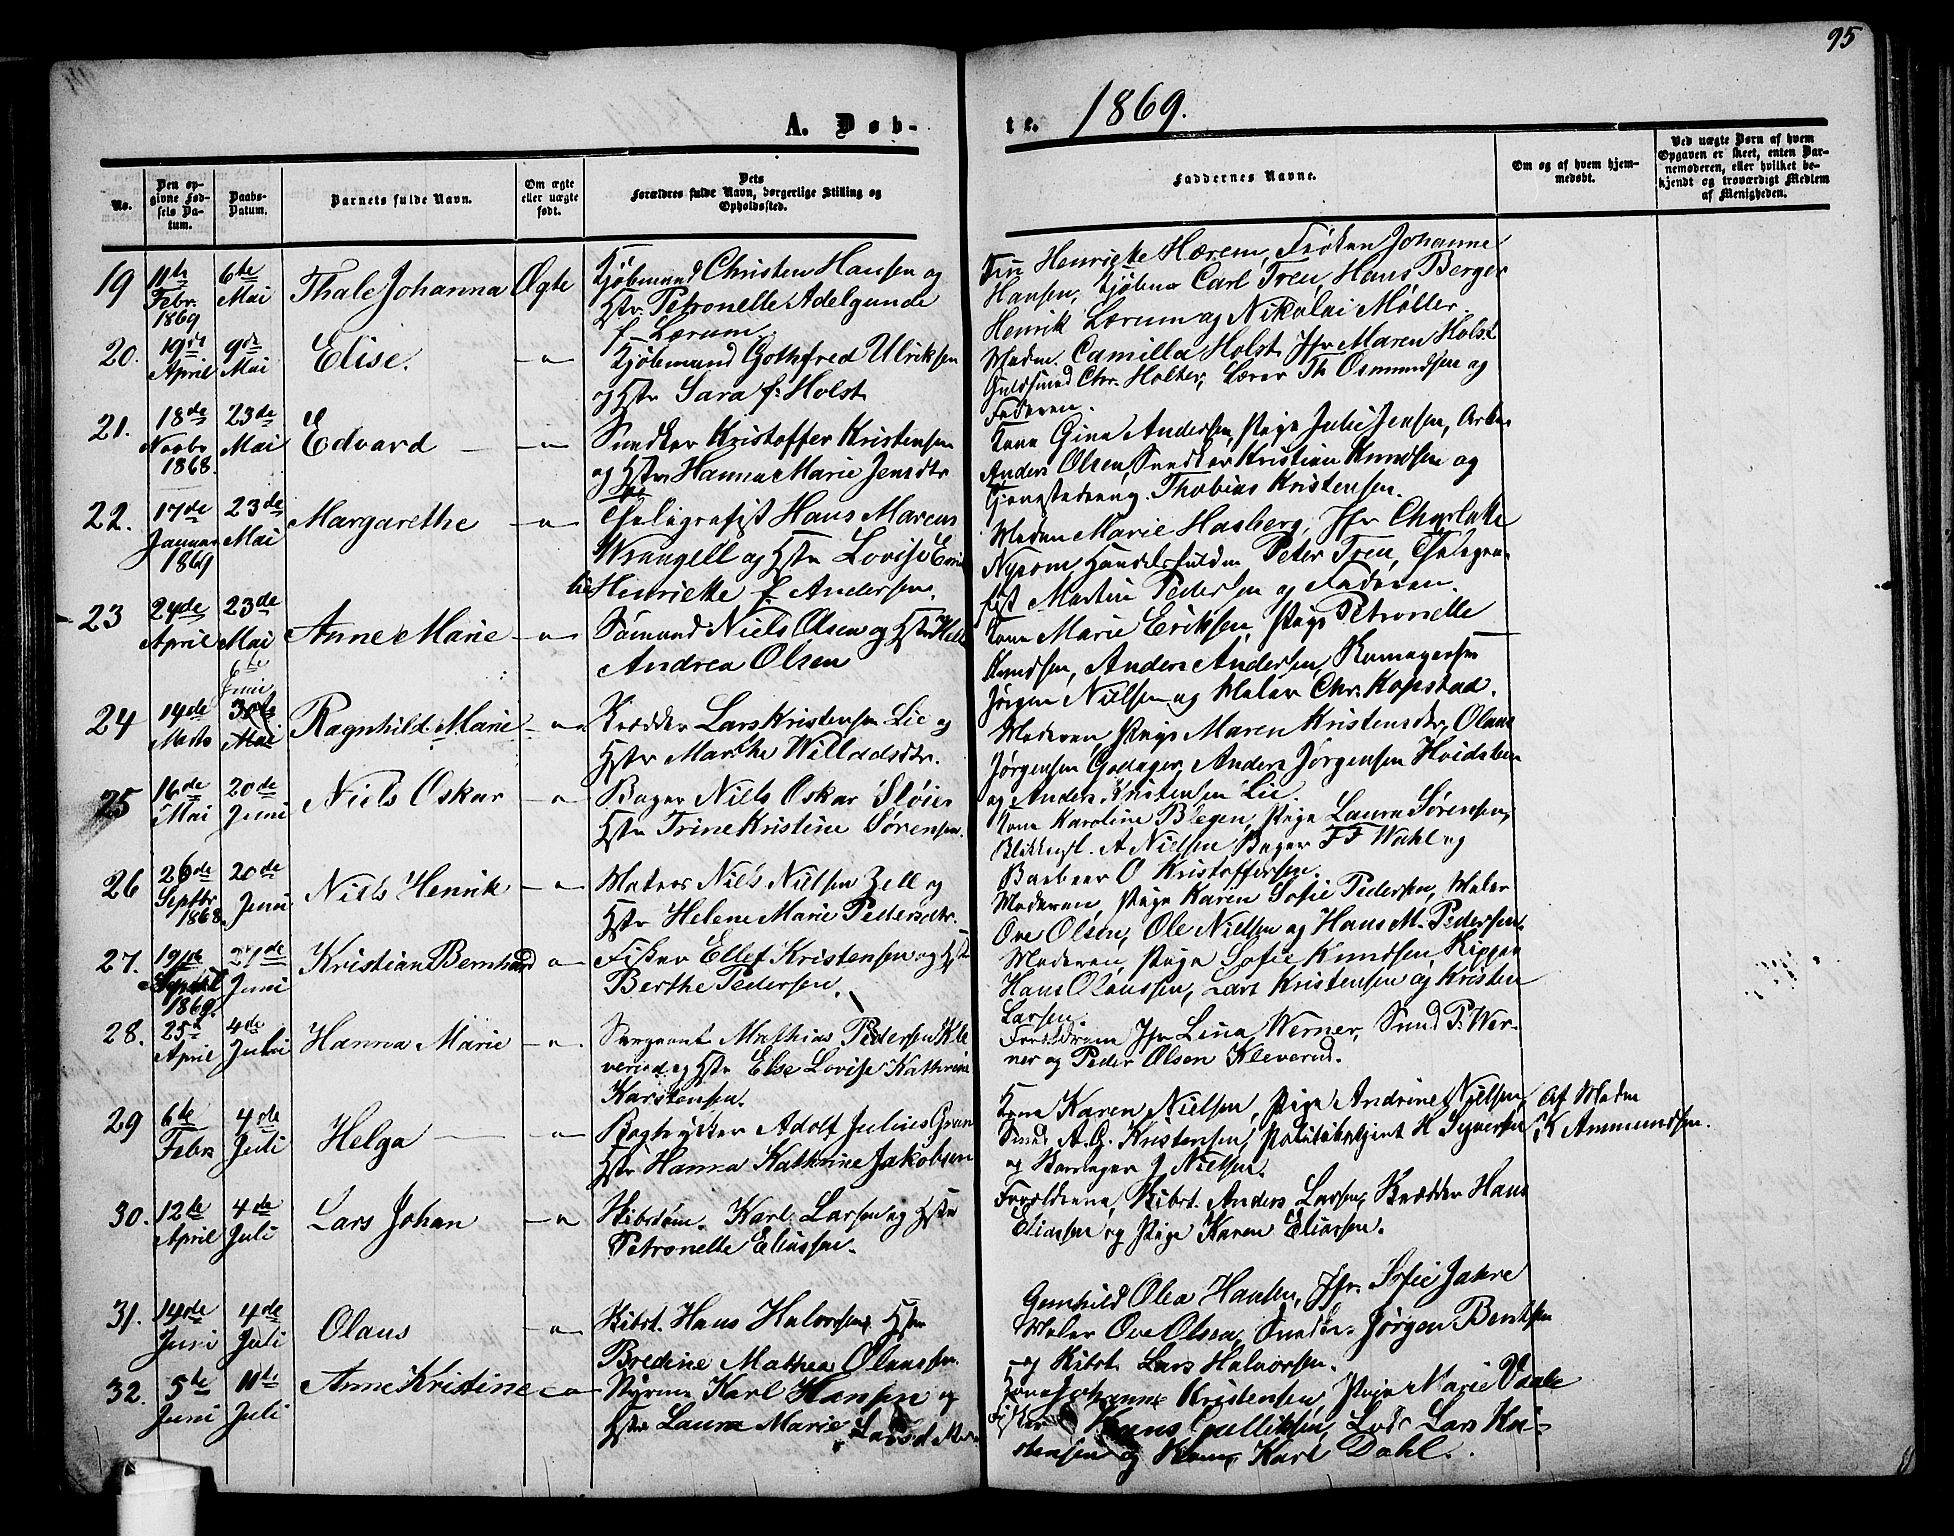 95
A. Døb-
te. 1869.
No.
Den opgivne Fødsels Datum.
Daabs-Datum.
Barnets fulde Navn.
Om ægte eller uægte født.
Dets Forældres fulde Navn, borgerlige Stilling og Opholdssted.
Faddernes Navne.
Om og af hvem hjemmedøbt.
Ved uægte Børn af hvem Opgaven er skeet, enten Barnemoderen, eller hvilket bekjendt og troværdigt Medlem af Menigheden.
19 11te Febr. 1869 6te Mai Thale Johanna Ægte
Kjøbmand Christen Hansen og
Hstr. Petronelle Adelgunde
f. Lærum.
Henriette Hærem, Frøken Johanne
Hansen, Kjøbm Carl Treu, Hans Berger
Henrik Lærum og Nikolai Møller.
20. 19de April 9de Mai Elise. -"-
Kjøbmand Gothfred Ulriksen
og Hstr Sara f: Holst
Madm. Camilla Holst, Jfr Maren Holst
Guldsmed Chr. Holter, Lærer Th Osmundsen og
Faderen.
21. 18de Novbr 1868. 23de Mai Edvard -"-
Snedker Kristoffer Kristensen
og Hstr Hanna Marie Jensdtr
Kone Gina Andersen, Pige Julie Jensen, Arb.
Anders Olsen, Snedker Kristian Knudsen og
Thobias Kristensen.
22. 17de Januar 1869 23de Mai Margarethe -"-
Telegrafist Hans Marcus
Wrangell og Hstr Lovise Emi
lie Henriette f Andersen.
Madam Marie Hasberg, Jfr Charlotte
Nyrom, Handelsfuldm Peter Treu, Telegra-
fist Martin Pedersen og Faderen.
23 24de April 23de Mai Anne Marie -"-
Sømand Niels Olsen og Hstr Helle
Andrea Olsen
Kone Marie Eriksen, Pige Petronelle
Knudsen, Anders Andersen,
Jørgen Nielsen og Maler Chr. Kopstad.
24 14de Marts 6te Juni 30te Mai Ragnhild Marie -"-
Skrædder Lars Kristensen Lie og
Hstr Marthe Willadsdtr.
Moderen, Pige Maren Kristensdtr, Olaus
Jørgensen Godager, Anders Jørgensen Hvidsten
og Anders Kristensen Lie.
25 16de Mai 20de Juni Niels Oskar -"-
Bager Niels Oskar Sløier
Hstr Trine Kristine Sørensen.
Kone Karoline Blegen, Pige Laura Sørensen,
Blikkensl. A Nielsen Bager F F Wahl og
Barbeer O Kristoffersen.
26 26de Septbr 1868. 20de Juni Niels Henrik -"-
Matros Niels Nielsen Zell og
Hstr Helene Marie Pedersdtr.
Moderen, Pige Karen Sofie Pedersen, Maler
Ove Olsen, Ole Nielsen og Hans M. Pedersen.
27. 19de April 1869. 27de Juni Kristian Bernhard -"-
Fisker Ellef Kristensen og Hst
Berthe Pedersen.
Moderen, Pige Sofie Knudsen,
Hans Olaussen, Lars Kristensen og Kristen
Larsen.
28. 25d April 4de Juli Hanna Marie -"-
Sergeant Mathias Pedersen Kle
verud og Hstr Else Lovise Kathrine
Karstensen.
Forældrene, Jfr Lina Werner, Smed P. Wer-
ner og Peder Olsen Kleverud.
29 6te Febr 4de Juli Helga -"-
Bogtrykker Adolf Julius Gran
Hstr Hanna Kathrine Jakobsen
Kone Karen Nielsen, Pige Andrine Nielsen
Smed A. G. Kristensen, Politibetjent H Syversen
og J Nielsen.
Af Madm
K Ammundsen.
30. 12te April 4de Juli Lars Johan -"-
Skibstøm. Karl Larsen og Hstr
Petronelle Eliassen.
Forældrene, Skibst. Anders Larsen, Skrædder Hans
Eliassen og Pige Karen Eliassen.
31. 14de Juni 4de Juli Olaus -"-
Skibst. Hans Halvorsen Hstr
Bredine Mathea Olaussen.
Gunhild Olea Hansen, Jfr. Sofie Jahre
Maler Ove Olsen, Snedk. Jørgen Bentsen
og Skibst Lars Halvorsen.
32. 5te Juni 11te Juli Anne Kristine -"-
Styrm Karl Hansen og
Hstr Laura Marie Larsd
Kone Johanne Kristensen, Pige Marie Vaale
Fisker Hans Gulliksen, Lods Lars Kri-
stensen og Karl Dahl.